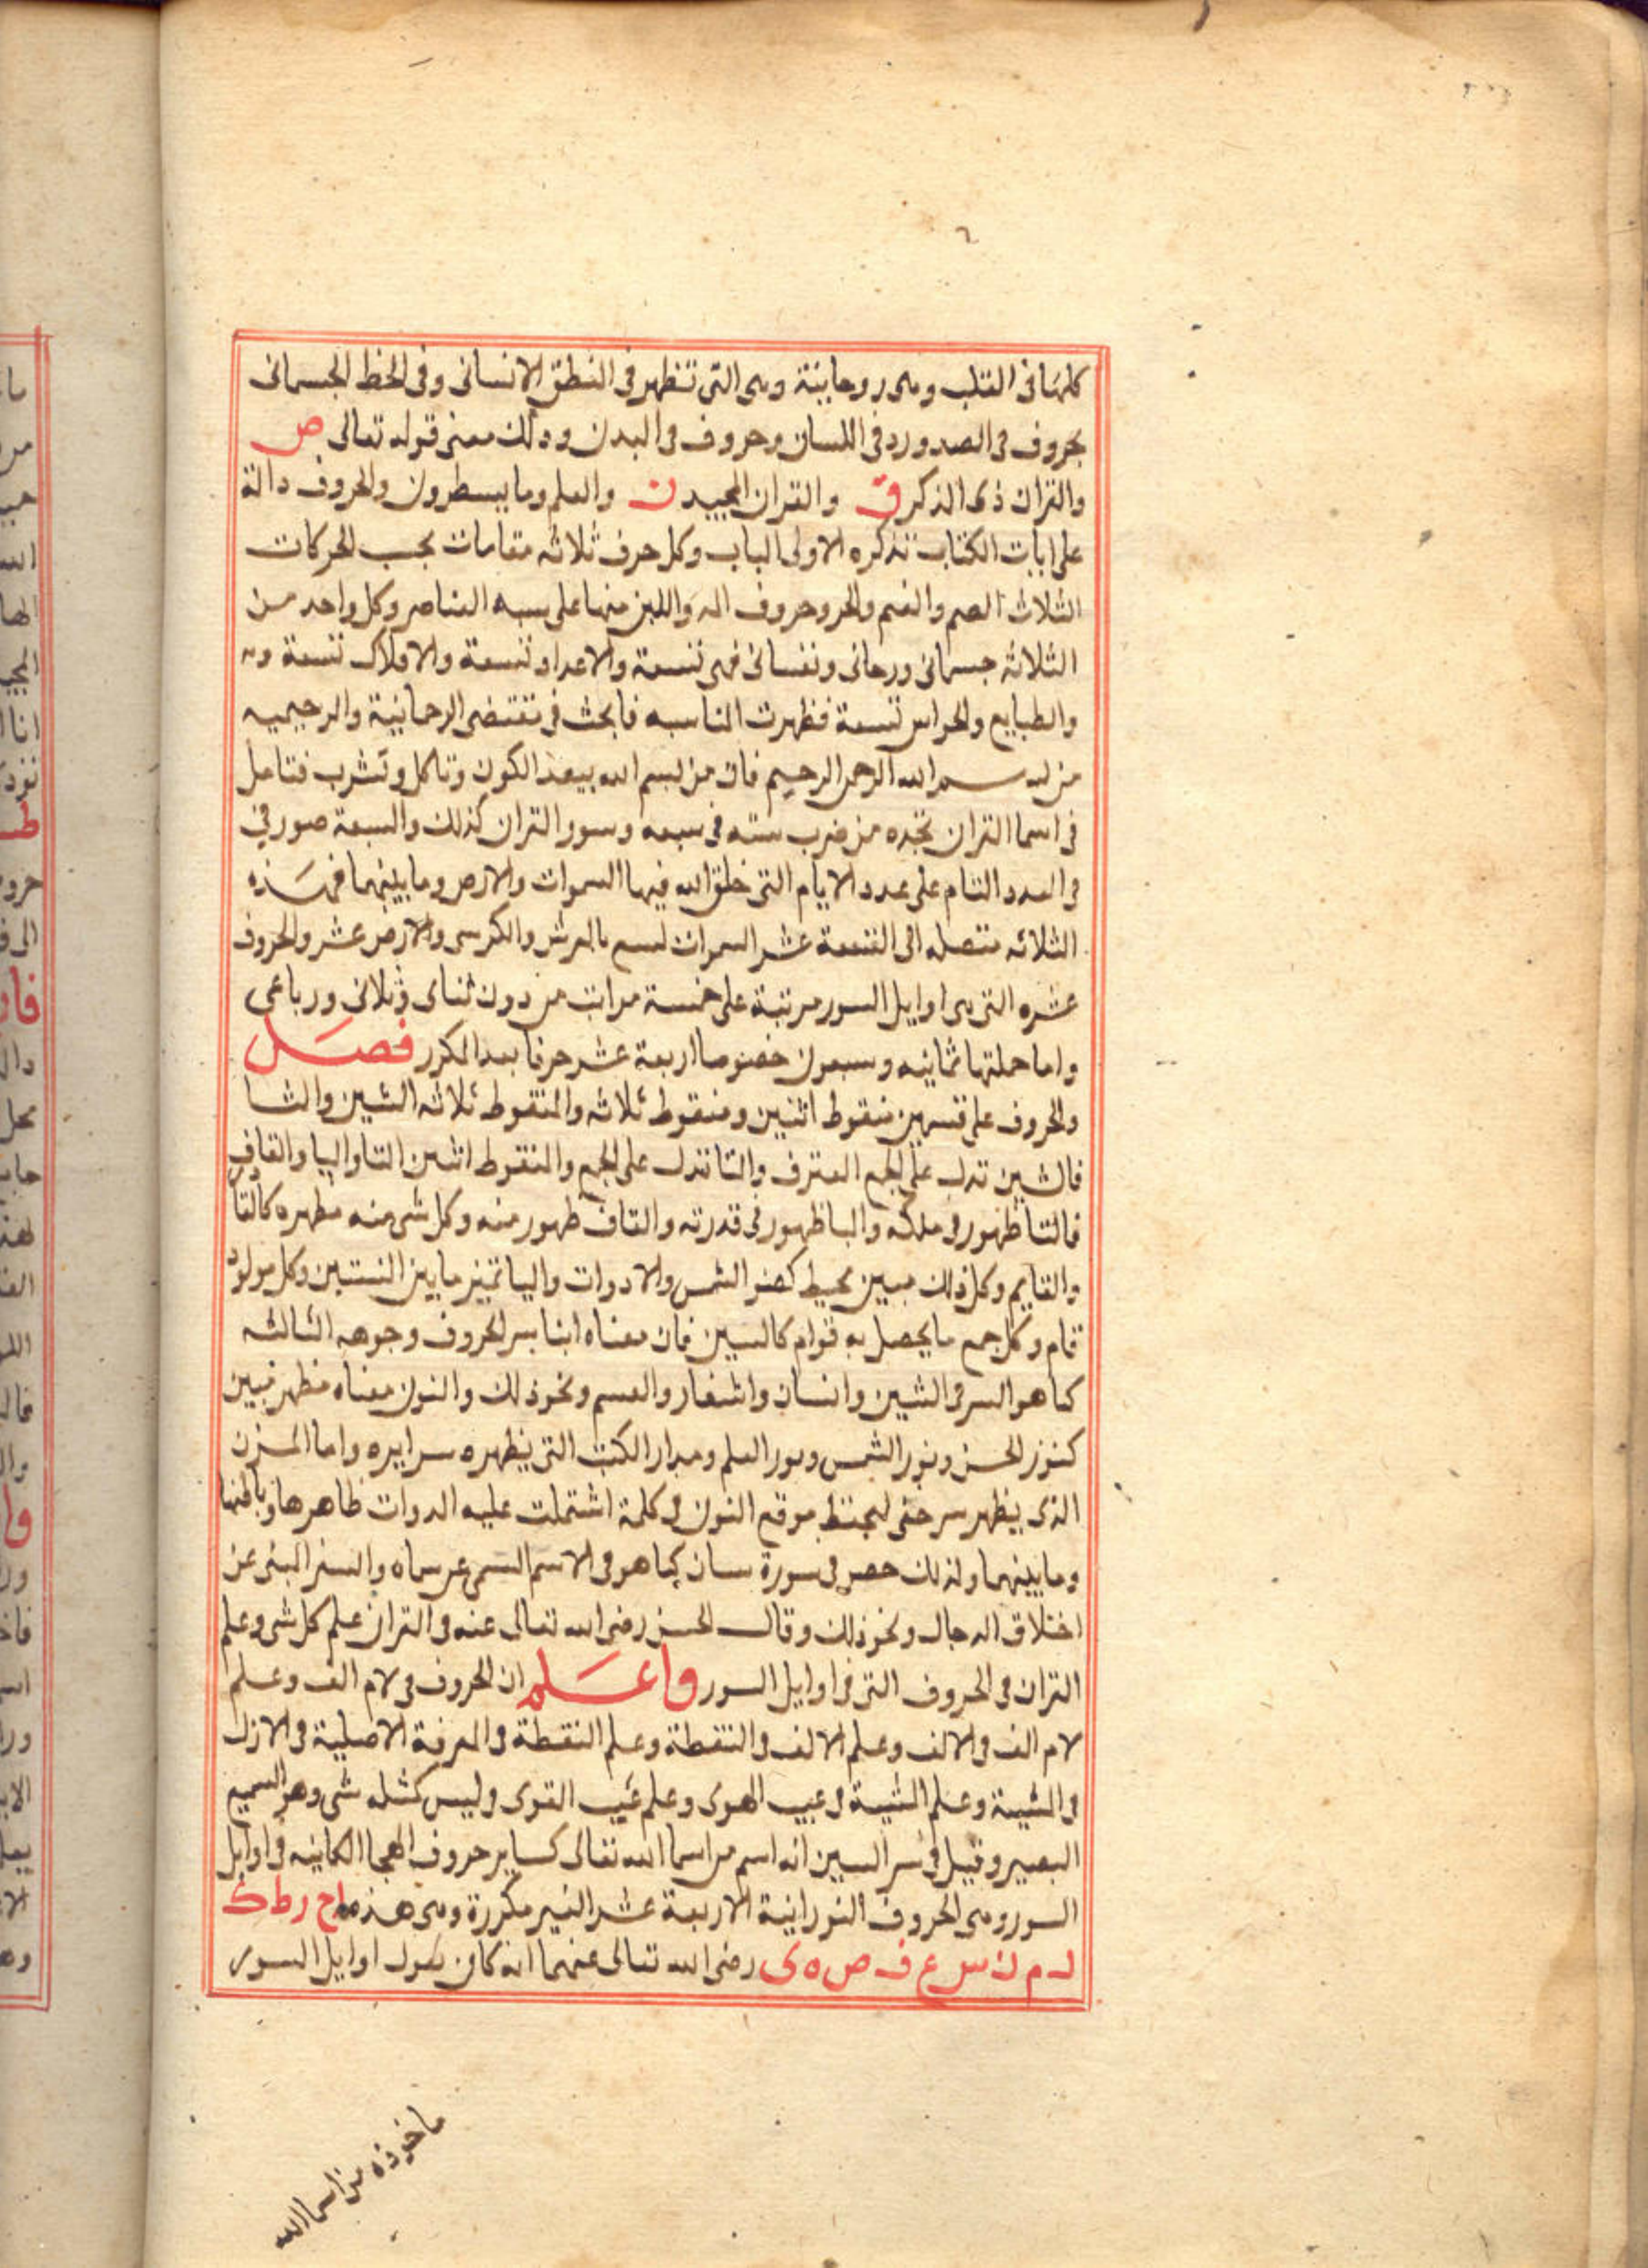 كلها فى القلب وهى روحانية وهى التى تظهر فى النطق الانسانى وفى الخط الجسمانى
بحروف فى الصدور وفى اللسان وحروف فى البدن وذلك معنى قوله تعالى ص
والقران ذى الذكر ق والقران المجيد ن والقلم وما يسطرون والحروف دالة
على ايات الكتاب تذكره لاولى الباب وكل حرف ثلاثه مقامات بحسب الحركات
الثلاث الضم والفتح والجر وحروف المد واللين منها على سبه العناصر وكل واحد من
الثلاثه جسمانى ورحانى ونفسانى فهى تسعة والاعداد تسعة والافلاك تسعة
والطبايع والحواس تسعة فظهرت المناسبه فابحث فى مقتضى الرحمانية والرحيميه
من بسم الله الرحمن الرحيم فان من بسم الله الكون وتاكل وتشرب فتامل
فى اسما القران تجده من ضرب سته فى سبعه وسور القران كذلك والسبعة صور فى
فى العدد التام على عدد الايام التى خلق الله فيها السموات والارض وما بينهما فهذه
الثلاثه متصله الى التسعة عشر السموات بالعرش والكرسى والارض عشر والحروف
عشره التى هى اوايل السور مرتبة على خمسة مراتب من دون ثناى وثلاثى ورباعى
واما جملتها ثمانيه وسبعون خصوصا اربعة عشر حرفا بعد المكرر فصل
والحروف على قسمين منقوط اثنين ومنقوط ثلاثه والمنقوط ثلاثه الشين والثا
فالشين تدل على الجمع المفترق والثا تدل على الجمع والمنقوط اثنين التا واليا والقاف
فالتا ظهور فى ملكه واليا ظهور فى قدرته والقاف ظهور منه وكل شى منه مظهره كالقا
والقايم وكل ذلك مبين محيط كضو الشمس والادوات واليا تميز ما بين النسبتين وكل مولود
قام وكل جمع ما يحصل به قوام كالسين فان معناه انبا بسر الحروف وجوهه الثالثه
كما هو السر فى الشين وانسان واشعار والقسم ونحو ذلك والنون معناه مظهر مبين
كنوز الحسن ونور الشمس ونور العلم ومدار الكتب التى يظهره سرايره واما المزن
الذى يظهر سر خفى موقع النون فى كلمة اشتملت عليه الدوات ظاهرها وباطنها
وما بينهما ولذلك حصر فى سورة كما هو فى الاسم المسمى عن مسماه والسر المبنى عن
اختلاق الدجال ونحو ذلك وقال الحسن رضى الله تعالى عنه فى القران علم كل شى وعلم
القران فى الحروف التى فى اوايل السور واعلم ان الحروف فى لام الف وعلم
لام الف فى الالف وعلم الالف فى النقطة وعلم النقطة فى المعرفة الاصلية فى الازل
فى المشية وعلم المشية فى غيب الهوى وعلم غيب القوى وليس كمثله شى وهو السميع
البصير وقيل فى سر السين انه اسم من اسما الله تعالى كساير حروف الهجا الكاينه فى اوايل
السور وهى الحروف النورانية الاربعة عشر الغير مكررة وهى هذه ا ح ر ط ك
ل م ن س ع ف ص ه ى رضى الله تعالى عنهما انه كان يقول اوايل السور
ماخوذه من اسما الله